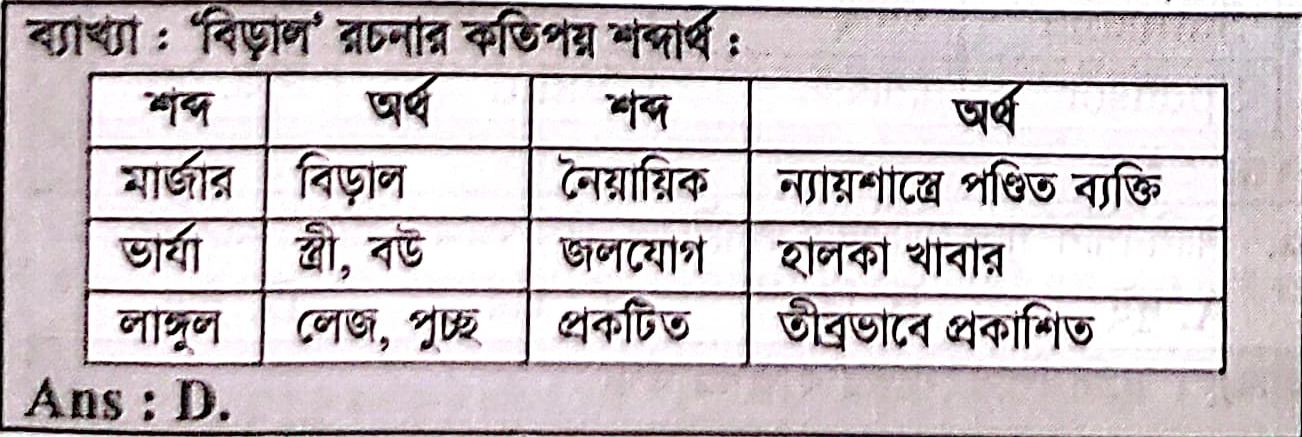 ব্যাখ্যা : ‘বিড়াল’ রচনার কতিপয় শব্দার্থ :
শব্দ অর্থ শব্দ অর্থ
মার্জার বিড়াল নৈয়ায়িক ন্যায়শাস্ত্রে পণ্ডিত ব্যক্তি
ভার্যা স্ত্রী, বউ জলযোগ হালকা খাবার
লাঙ্গুল লেজ, পুচ্ছ প্রকটিত তীব্রভাবে প্রকাশিত
Ans : D.